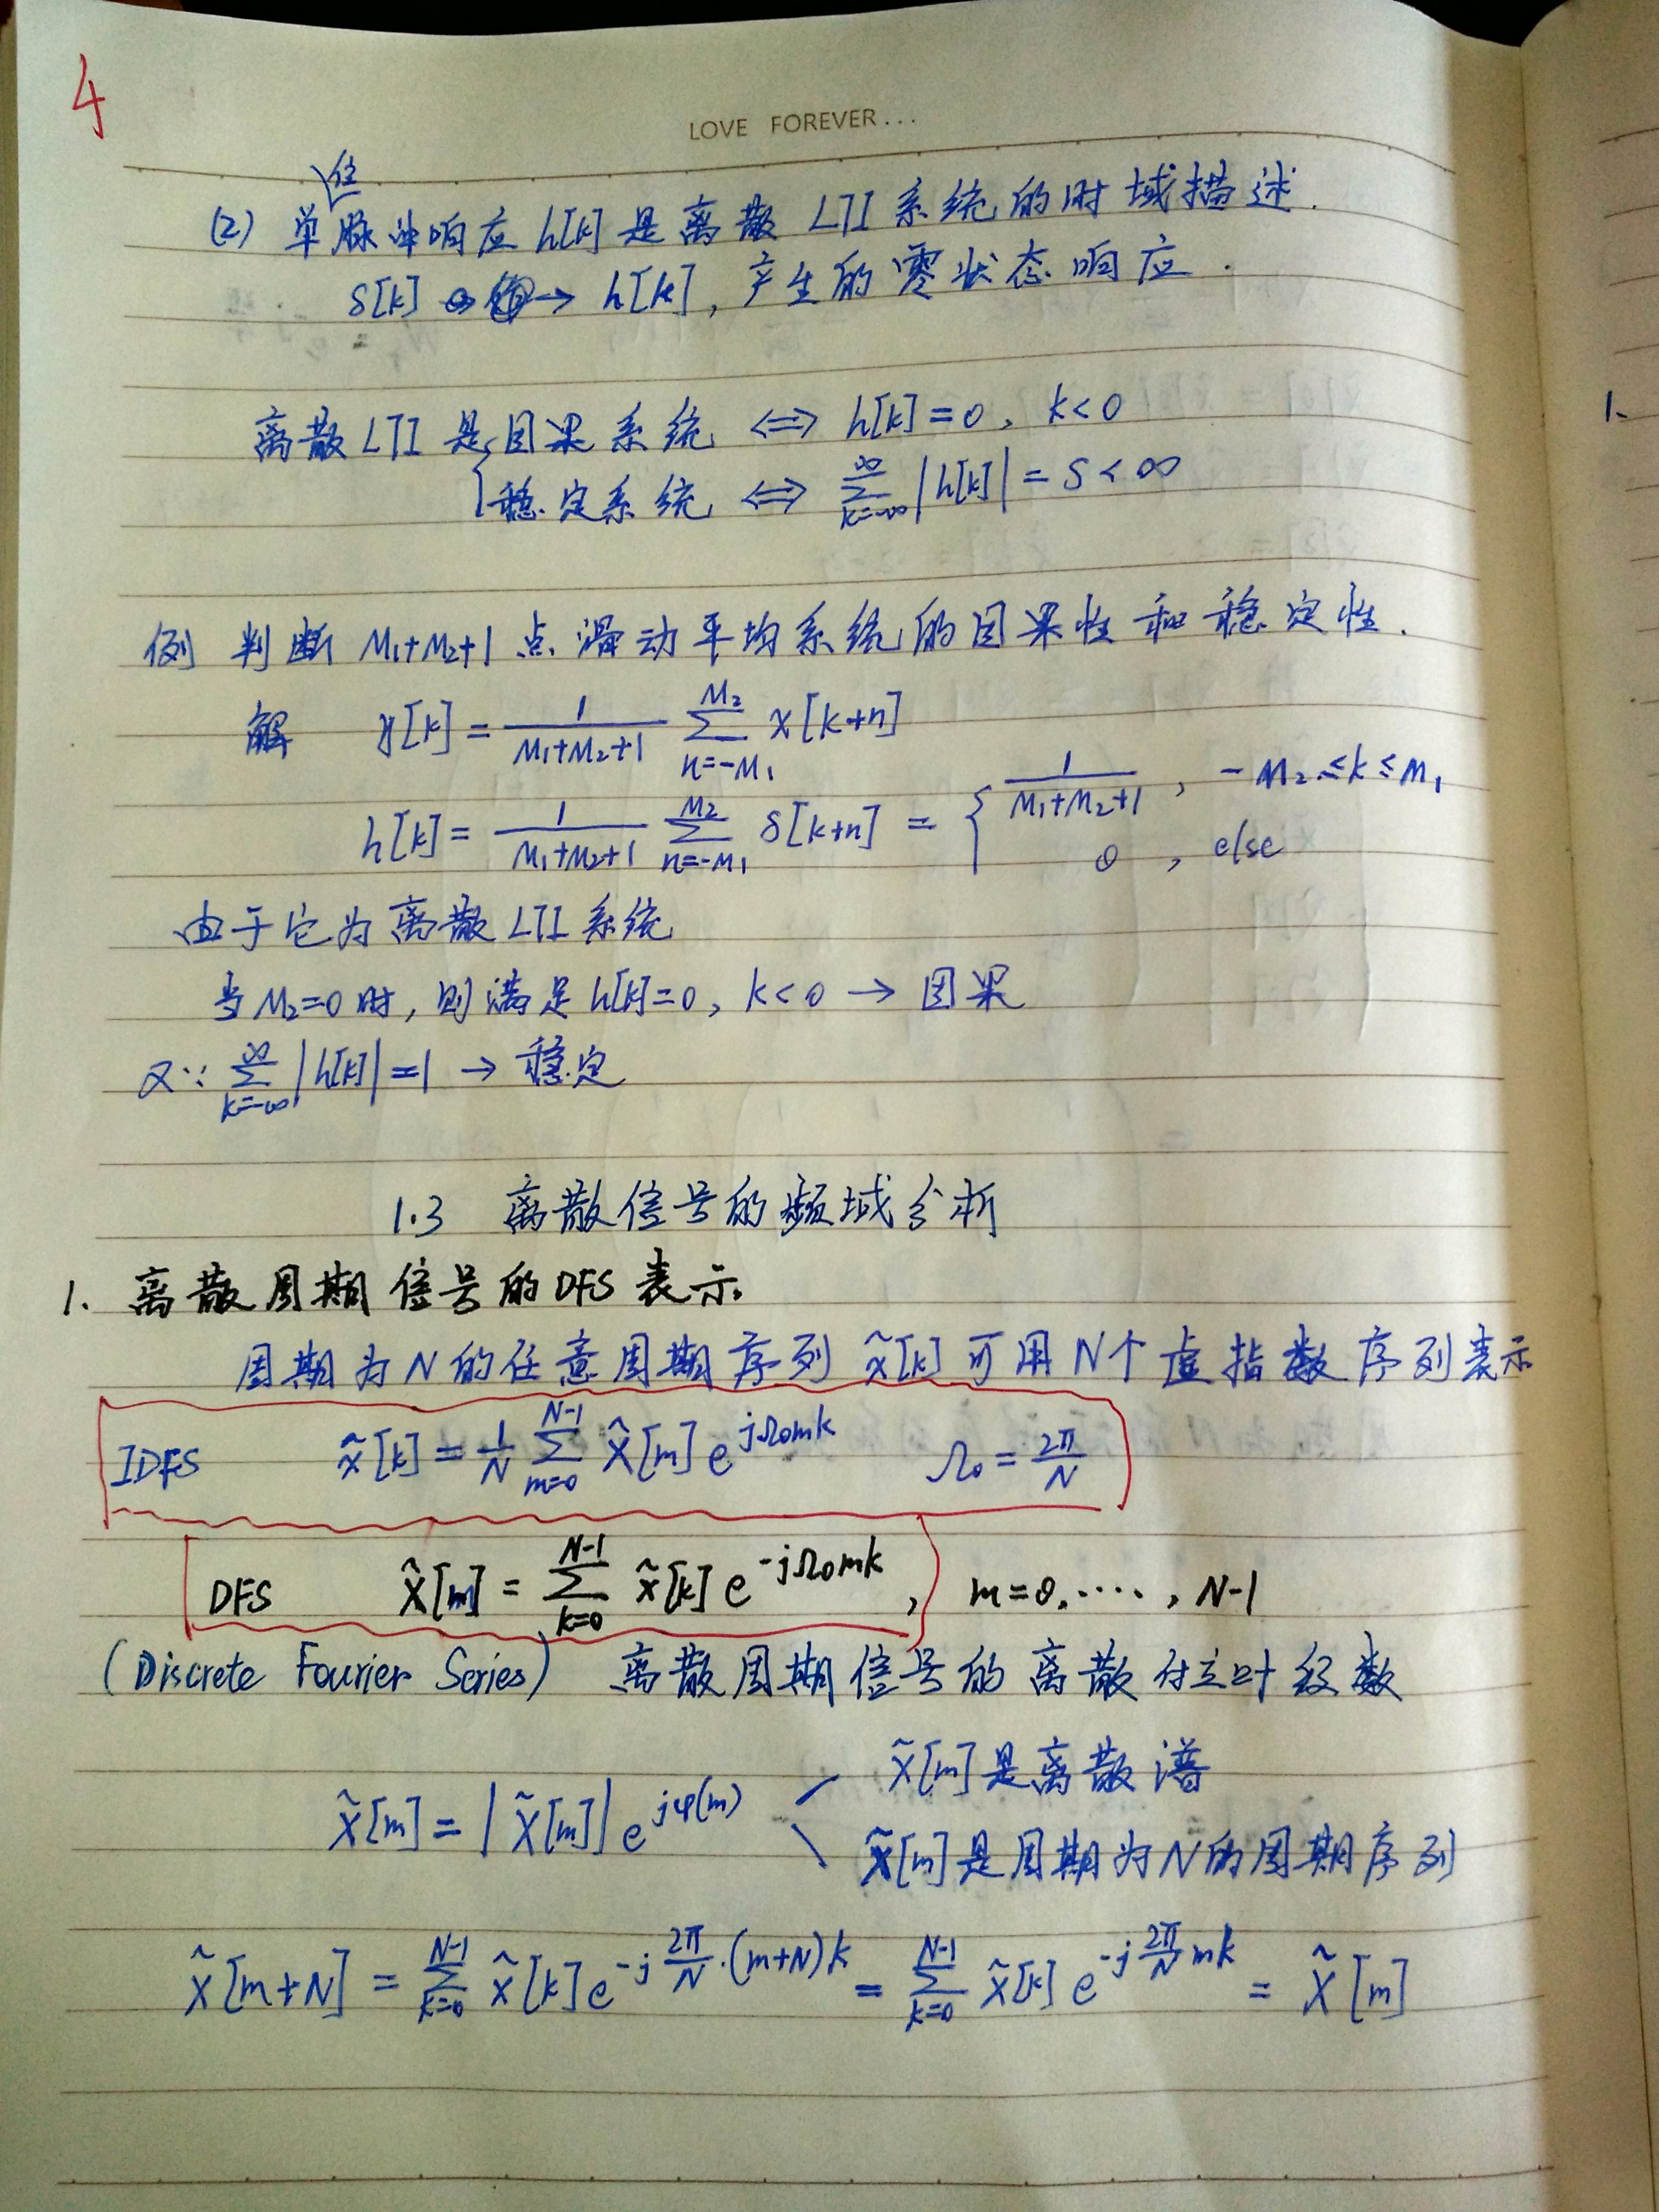 4
LOVE FOREVER...
(2) 单位脉冲响应 h[k] 是离散 LTI 系统的时域描述.
δ[k] → h[k], 产生的零状态响应.
离散LTI 是因果系统 ⟺ h[k]=0, k<0
稳定系统 ⟺ ∑_{k=-∞}^{∞} |h[k]| = S < ∞
例 判断 M₁+M₂+1 点滑动平均系统的因果性和稳定性.
解 y[k] = 1/(M₁+M₂+1) ∑_{n=-M₁}^{M₂} x[k+n]
h[k] = 1/(M₁+M₂+1) ∑_{n=-M₁}^{M₂} δ[k+n] = { 1/(M₁+M₂+1), -M₂≤k≤M₁
0, else
由于它为离散LTI系统
当M₂=0时, 则满足h[k]=0, k<0 → 因果
又∵ ∑_{k=-∞}^{∞} |h[k]| = 1 → 稳定
1.3 离散信号的频域分析
1. 离散周期信号的DFS表示
周期为N的任意周期序列 x̃[k] 可用N个虚指数序列表示
IDFS x̃[k] = 1/N ∑_{m=0}^{N-1} X̂[m] e^{jΩ₀mk} Ω₀ = 2π/N
DFS X̂[m] = ∑_{k=0}^{N-1} x̃[k] e^{-jΩ₀mk}, m=0,····, N-1
(Discrete Fourier Series) 离散周期信号的离散付立叶级数
X̃[m] = |X̃[m]| e^{jφ(m)}
X̃[m]是离散谱
X̃[m]是周期为N的周期序列
X̃[m+N] = ∑_{k=0}^{N-1} x̃[k] e^{-j 2π/N·(m+N)k} = ∑_{k=0}^{N-1} x̃[k] e^{-j 2π/N mk} = X̃[m]
1.